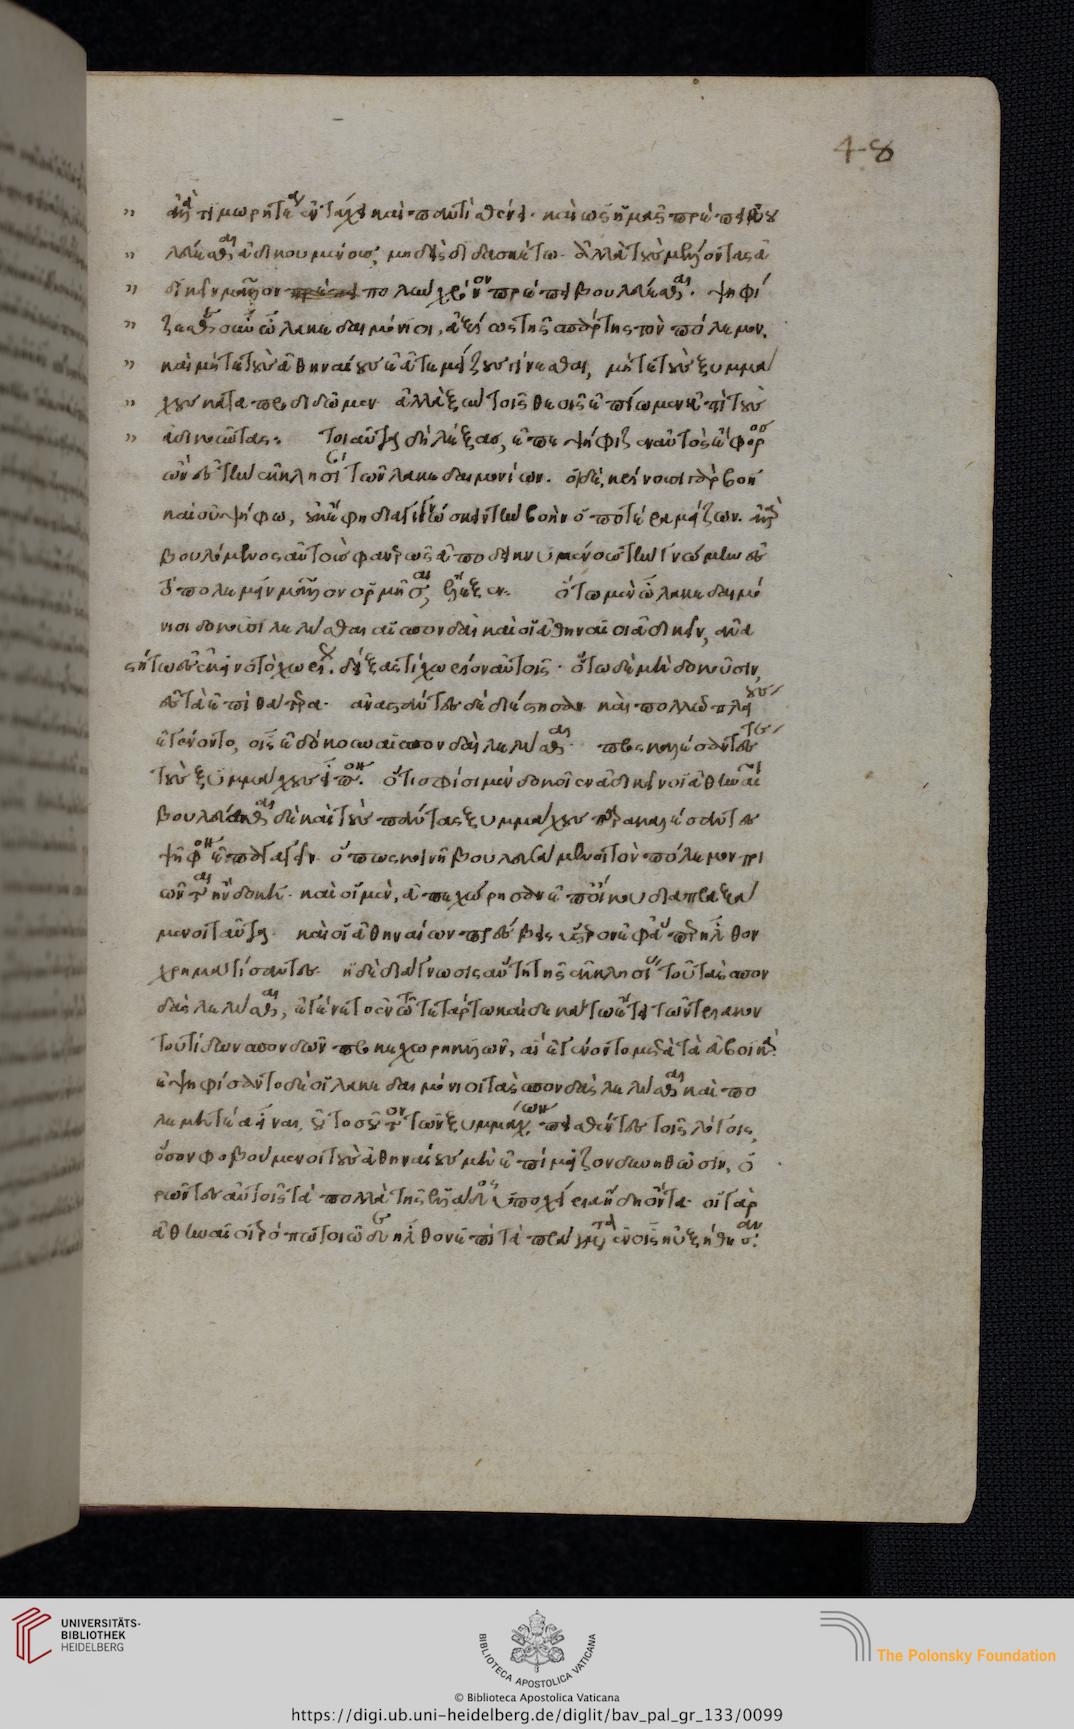 48
ἀλλὰ τιμωρητέα ἐν τάχει καὶ παντὶ σθένει. καὶ ὡς ἡμᾶς πρέπει βου
λεύεσθαι ἀδικουμένους, μηδεὶς διδασκέτω. ἀλλὰ τοὺς μέλλοντας ἀ
δικεῖν μᾶλλον πολὺν χρόνον πρέπει βουλεύεσθαι. ψηφί
ζεσθε οὖν ὦ λακεδαιμόνιοι, ἀξίως τῆς σπάρτης τὸν πόλεμον.
καὶ μήτε τοὺς ἀθηναίους ἐᾶτε μείζους γίνεσθαι, μήτε τοὺς ξυμμά
χους καταπροδιδῶμεν. ἀλλὰ ξὺν τοῖς θεοῖς ἐπίωμεν ἐπὶ τοὺς
ἀδικοῦντας: τοιαῦτα δὴ λέξας, ἐπεψήφιζεν αὐτὸς ἔφορος
ὢν ἐς τὴν ἐκκλησίαν τῶν λακεδαιμονίων. ὁ δὲ, κρίνουσι γὰρ βοῇ
καὶ οὐ ψήφω, οὐκ ἔφη διαγιγνώσκειν τὴν βοὴν ὁποτέρα μείζων. ἀλλὰ
βουλόμενος αὐτοὺς φανερῶς ἀποδεικνυμένους τὴν γνώμην ἐς
τὸ πολεμεῖν μᾶλλον ὁρμῆσαι, ἔλεξεν. ὅτω μὲν ὦ λακεδαιμό
νιοι δοκοῦσι λελύσθαι αἱ σπονδαὶ καὶ οἱ ἀθηναῖοι ἀδικεῖν, ἀνα
στήτω ἐς ἐκεῖνο τὸ χωρίον. δείξας τί χωρίον αὐτοῖς. ὅτω δὲ μὴ δοκοῦσιν,
ἐς τὰ ἐπὶ θάτερα. ἀναστάντες δὲ διέστησαν καὶ πολλῶ πλείους
ἐγένοντο, οἷς ἐδόκουν αἱ σπονδαὶ λελύσθαι. προσκαλέσαντες
τοὺς ξυμμάχους εἶπον. ὅτι σφίσι μὲν δοκοῖεν ἀδικεῖν οἱ ἀθηναῖοι
βούλεσθαι δὲ καὶ τοὺς πάντας ξυμμάχους παρακαλέσαντες
ψῆφον ἐπαγαγεῖν. ὅπως κοινῆ βουλευσάμενοι τὸν πόλεμον ποι
ῶνται ἢν δοκῆ. καὶ οἱ μὲν, ἀπεχώρησαν ἐπ' οἴκου διαπραξά
μενοι ταῦτα. καὶ οἱ ἀθηναίων πρέσβεις ὕστερον ἐφ' ἅπερ ἦλθον
χρηματίσαντες. ἡ δὲ διάγνωσις αὕτη τῆς ἐκκλησίας τοῦ τὰς σπον
δὰς λελύσθαι, ἐγένετο ἐν τῶ τετάρτω καὶ δεκάτω ἔτει τῶν τριακον
τουτίδων σπονδῶν προκεχωρηκυιῶν, αἳ ἐγένοντο μετὰ τὰ εὐβοϊκά.
ἐψηφίσαντο δὲ οἱ λακεδαιμόνιοι τὰς σπονδὰς λελύσθαι καὶ πο
λεμητέα εἶναι, οὐ τοσοῦτον τῶν ξυμμάχων πεισθέντες τοῖς λόγοις,
ὅσον φοβούμενοι τοὺς ἀθηναίους μὴ ἐπὶ μεῖζον δυνηθῶσιν, ὁ
ρῶντες αὐτοῖς τὰ πολλὰ τῆς ἑλλάδος ὑποχείρια ἤδη ὄντα. οἱ γὰρ
ἀθηναῖοι τρόπω τοιῶδε ἦλθον ἐπὶ τὰ πράγματα ἐν οἷς ηὐξήθησαν.
UNIVERSITÄTS-
BIBLIOTHEK
HEIDELBERG
BIBLIOTECA APOSTOLICA VATICANA
The Polonsky Foundation
© Biblioteca Apostolica Vaticana
https://digi.ub.uni-heidelberg.de/diglit/bav_pal_gr_133/0099